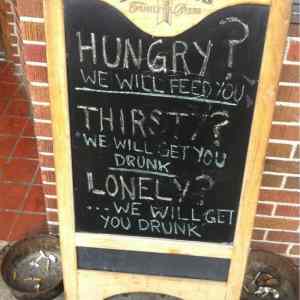 HUNGRY?
WE WILL FEED YOU
THIRSTY?
WE WILL GET YOU
DRUNK
LONELY?
...WE WILL GET
YOU DRUNK